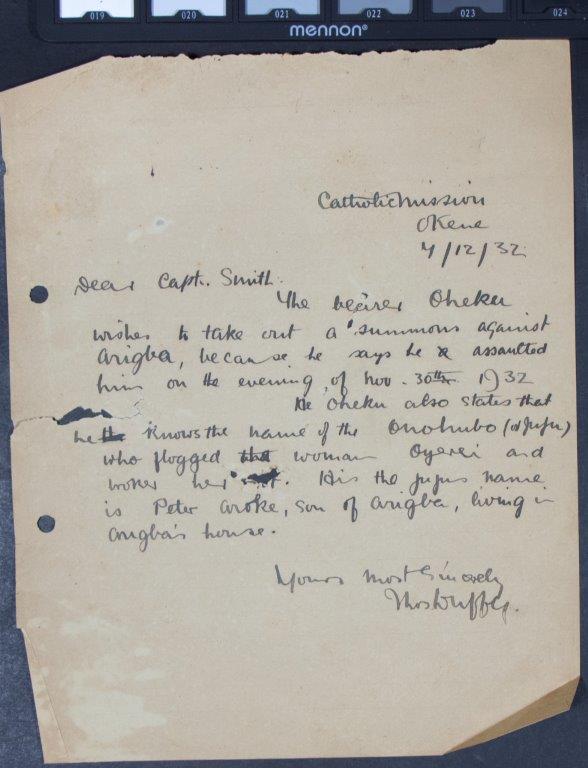 019 020 021 022 023 024
mennon®
Catholic Mission
Okene
7/12/32
Dear Capt. Smith.
The bearer Oheku
wishes to take out a summons against
Arigba, because he says he assaulted
him on the evening of Nov. 30th. 1932
He Oheku also states that
he knows the name of the Onohubo (or juju)
who flogged woman Oyerei and
woker her. His the jujus name
is Peter Aroke, son of Arigba, living in
Arigba's house.
Yours most Sincerely